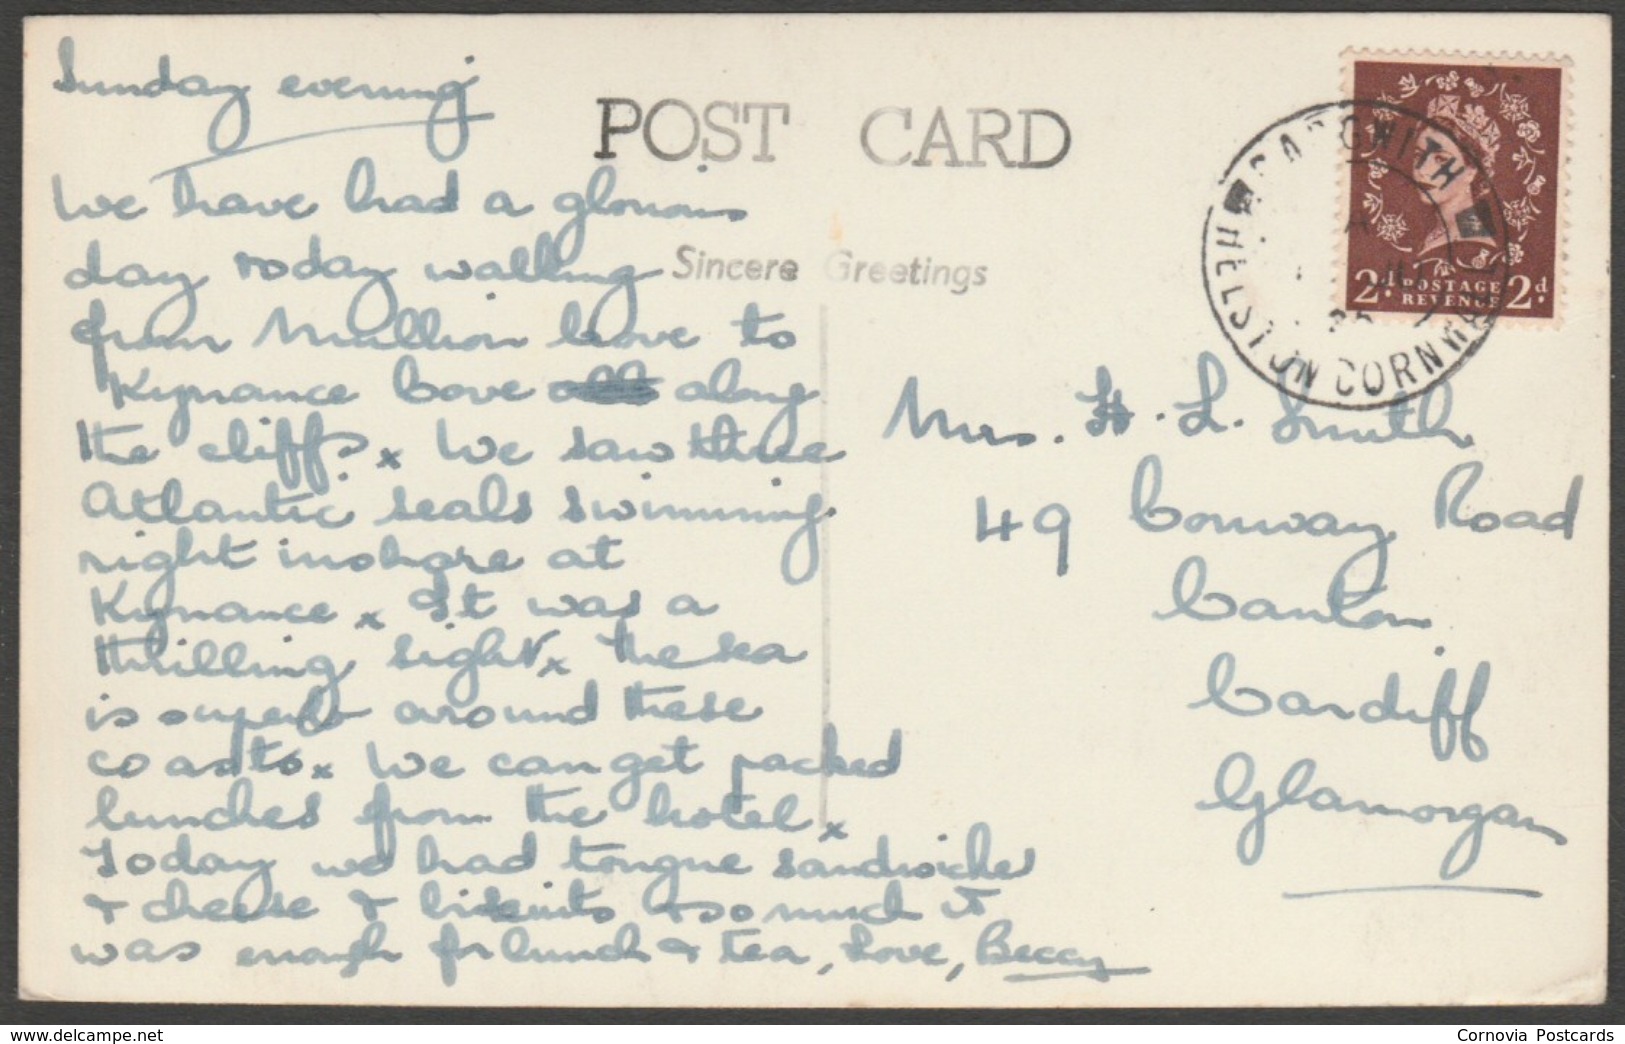 Sunday evening
We have had a glorious
day today walking
from Mullion Cove to
Kynance Cove along
the cliffs x We saw three
Atlantic seals swimming
right inshore at
Kynance x It was a
thrilling sight x The sea
is superb around these
coasts x We can get packed
lunches from the hotel x
Today we had tongue sandwiches
& cheese & biscuits & so much it
was enough for lunch & tea, Love, Beccy
POST CARD
Sincere Greetings
CADGWITH
HELSTON CORNWALL
2d POSTAGE REVENUE 2d
Mrs. H. L. Smith
49 Conway Road
Canton
Cardiff
Glamorgan
delcampe.net
Cornovia Postcards